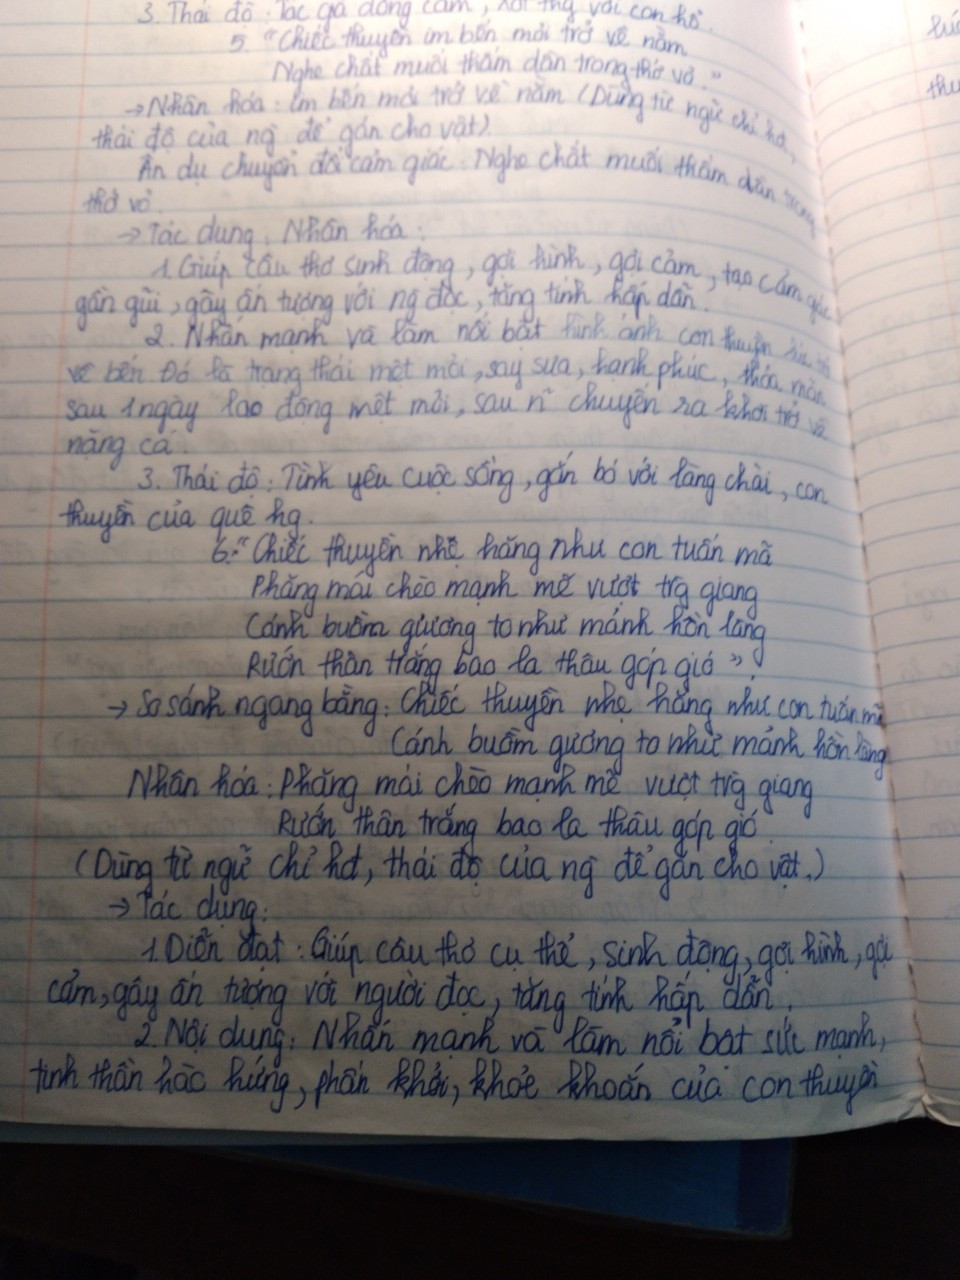 3. Thái độ: Tác giả đồng cảm, xót thg với con hổ.
5 "Chiếc thuyền im bến mỏi trở về nằm
Nghe chất muối thấm dần trong thớ vỏ."
→ Nhân hóa: im bến mỏi trở về nằm (Dùng từ ngữ chỉ hđ,
thái độ của ng để gán cho vật)
Ẩn dụ chuyển đổi cảm giác: Nghe chất muối thấm dần trong
thớ vỏ.
→ Tác dụng: Nhân hóa:
1. Giúp câu thơ sinh động, gợi hình, gợi cảm, tạo cảm giác
gần gũi, gây ấn tượng với ng đọc, tăng tính hấp dẫn.
2. Nhấn mạnh và làm nổi bật hình ảnh con thuyền
về bến Đó là trạng thái mệt mỏi, say sưa, hạnh phúc, thỏa mãn
sau 1 ngày lao động mệt mỏi, sau n~ chuyến ra khơi trở về
nặng cá.
3. Thái độ: Tình yêu cuộc sống, gắn bó với làng chài, con
thuyền của quê hg.
6. "Chiếc thuyền nhẹ hăng như con tuấn mã
Phăng mái chèo mạnh mẽ vượt trg giang
Cánh buồm giương to như mảnh hồn làng
Rướn thân trắng bao la thâu góp gió".
→ So sánh ngang bằng: Chiếc thuyền nhẹ hăng như con tuấn mã
Cánh buồm gương to như mảnh hồn làng
Nhân hóa: Phăng mái chèo mạnh mẽ vượt trg giang
Rướn thân trắng bao la thâu góp gió
(Dùng từ ngữ chỉ hđ, thái độ của ng để gắn cho vật.)
→ Tác dụng:
1. Diễn đạt: Giúp câu thơ cụ thể, sinh động, gợi hình, gợi
cảm, gây ấn tượng với người đọc, tăng tính hấp dẫn.
2. Nội dung: Nhấn mạnh và làm nổi bật sức mạnh,
tinh thần hào hứng, phấn khởi, khỏe khoắn của con thuyền